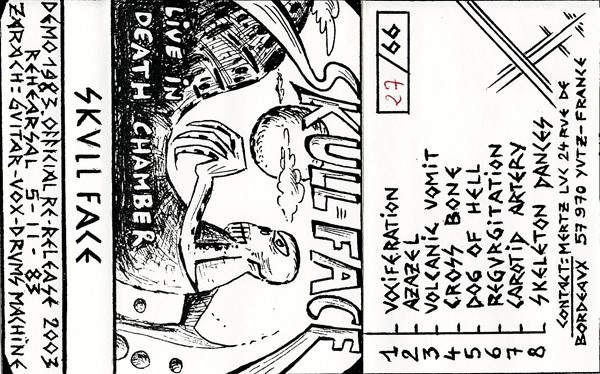 DEMO 1983 OFFICIAL RE-RELEASE 2003
REHEARSAL 5-11-83
ZARACH: GVITAR-VOX-DRVMS MACHINE
SKVLLFACE
LIVE IN
DEATH CHAMBER
SKULLFACE
27/66
1 - VOXIFERATION
2 - AZAZEL
3 - VOLCANIC VOMIT
4 - CROSS BONE
5 - DOG OF HELL
6 - REGVRGITATION
7 - CAROTID ARTERY
8 - SKELETON DANCES
CONTACT: MERTZ LVC 24 RVE DE
BORDEAVX 57970 YVTZ-FRANCE